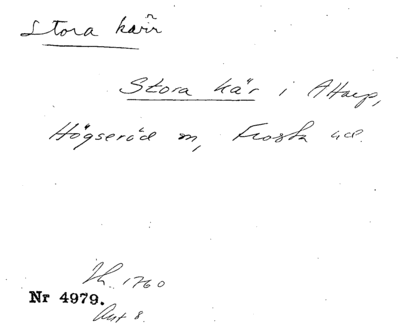 Stora kärr
Stora kär i AHarp,
Högseröd m, Frosta hd.
Lh. 1760
Nr 4979.
Akt 8.